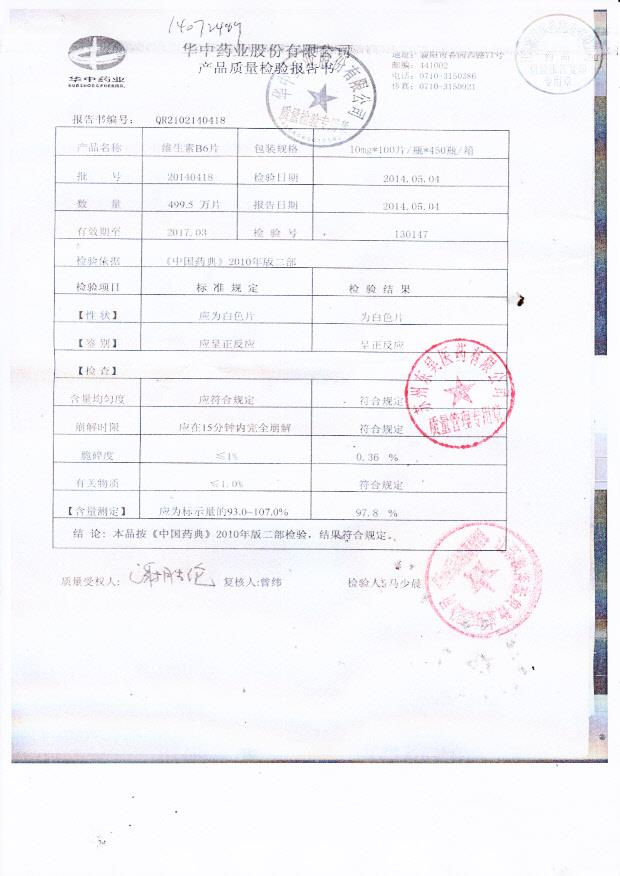 14072489
华中药业
华中药业股份有限公司
产品质量检验报告书
地址: 襄阳市春园西路11号
邮编: 441002
电话: 0710-3150386
传真: 0710-3150921
质量检验专用章
报告书编号: QR2102140418
产品名称 维生素B6片 包装规格 10mg*100片/瓶*450瓶/箱
批 号 20140418 检验日期 2014.05.04
数 量 499.5 万片 报告日期 2014.05.04
有效期至 2017.03 检 验 号 130147
检验依据 《中国药典》2010年版二部
检验项目 标 准 规 定 检 验 结 果
【性 状】 应为白色片 为白色片
【鉴 别】 应呈正反应 呈正反应
【检 查】
含量均匀度 应符合规定 符合规定
崩解时限 应在15分钟内完全崩解 符合规定
脆碎度 ≤1% 0.36 %
有关物质 ≤1.0% 符合规定
【含量测定】 应为标示量的93.0-107.0% 97.8 %
苏州东吴医药有限公司
质量管理专用章
结 论: 本品按《中国药典》2010年版二部检验, 结果符合规定。
质量受权人: 复核人:曾纬 检验人:马少晨